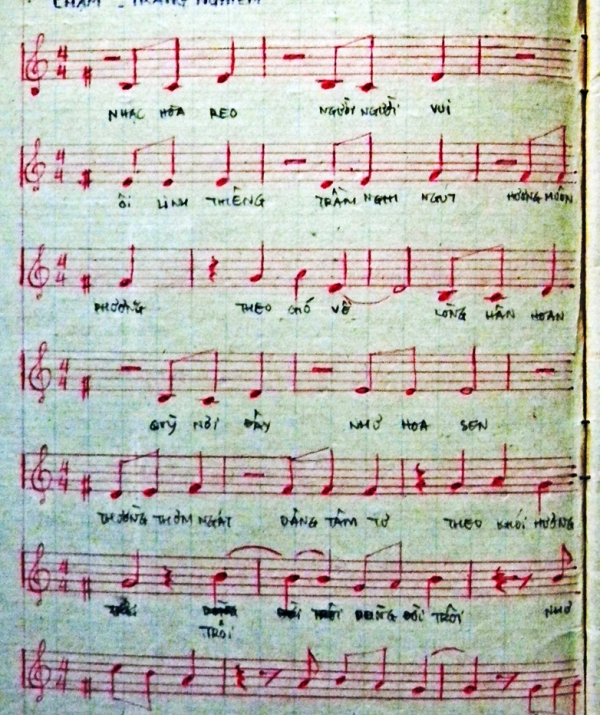 CHẬM - TRANG NGHIÊM
NHẠC HÒA REO NGƯỜI NGƯỜI VUI
ÔI LINH THIÊNG TRẦM NGHI NGÚT HƯƠNG MUÔN
PHƯƠNG THEO GIÓ VỀ LÒNG HÂN HOAN
QUỲ NƠI ĐÂY NHƯ HOA SEN
THƯỜNG THƠM NGÁT DÂNG TÂM TƯ THEO KHÓI HƯƠNG
ĐỜI TRÔI
TRÔI NHƯ